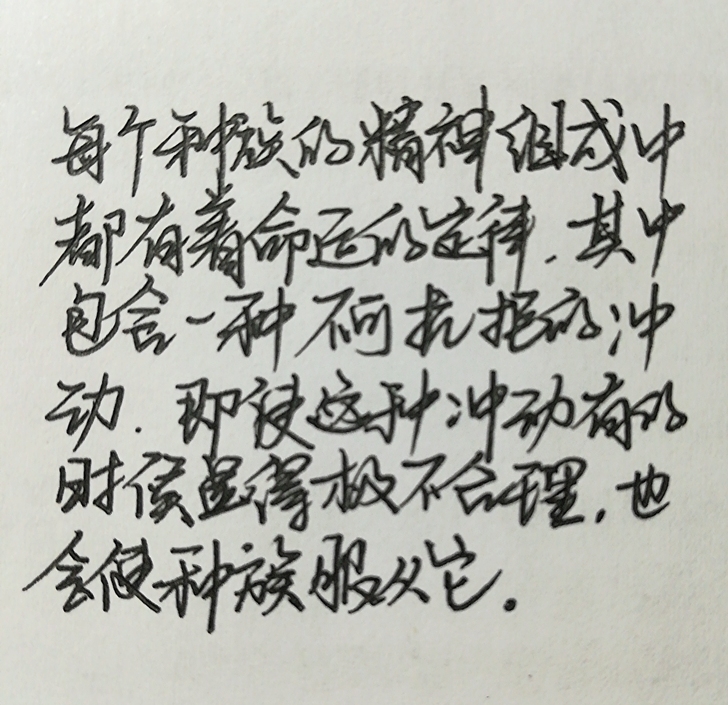 每个种族的精神组成中
都有着命运的定律.其中
包含一种不可抗拒的冲
动.即使这种冲动有的
时候显得极不合理.也
会使种族服从它。